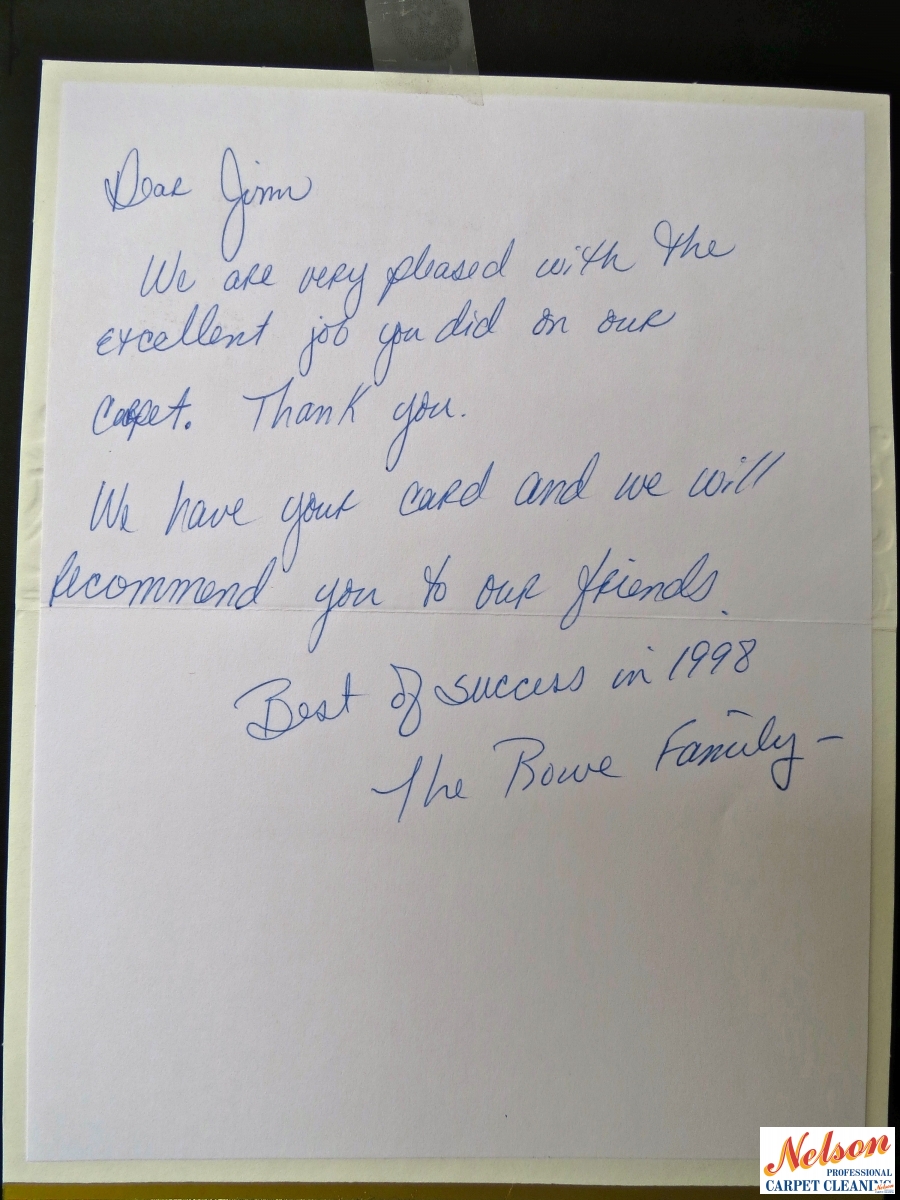 Dear Jim
We are very pleased with the
excellent job you did on our
carpet. Thank you.
We have your card and we will
recommend you to our friends.
Best of success in 1998
The Rowe Family –
Nelson
PROFESSIONAL
CARPET CLEANING
Nelson